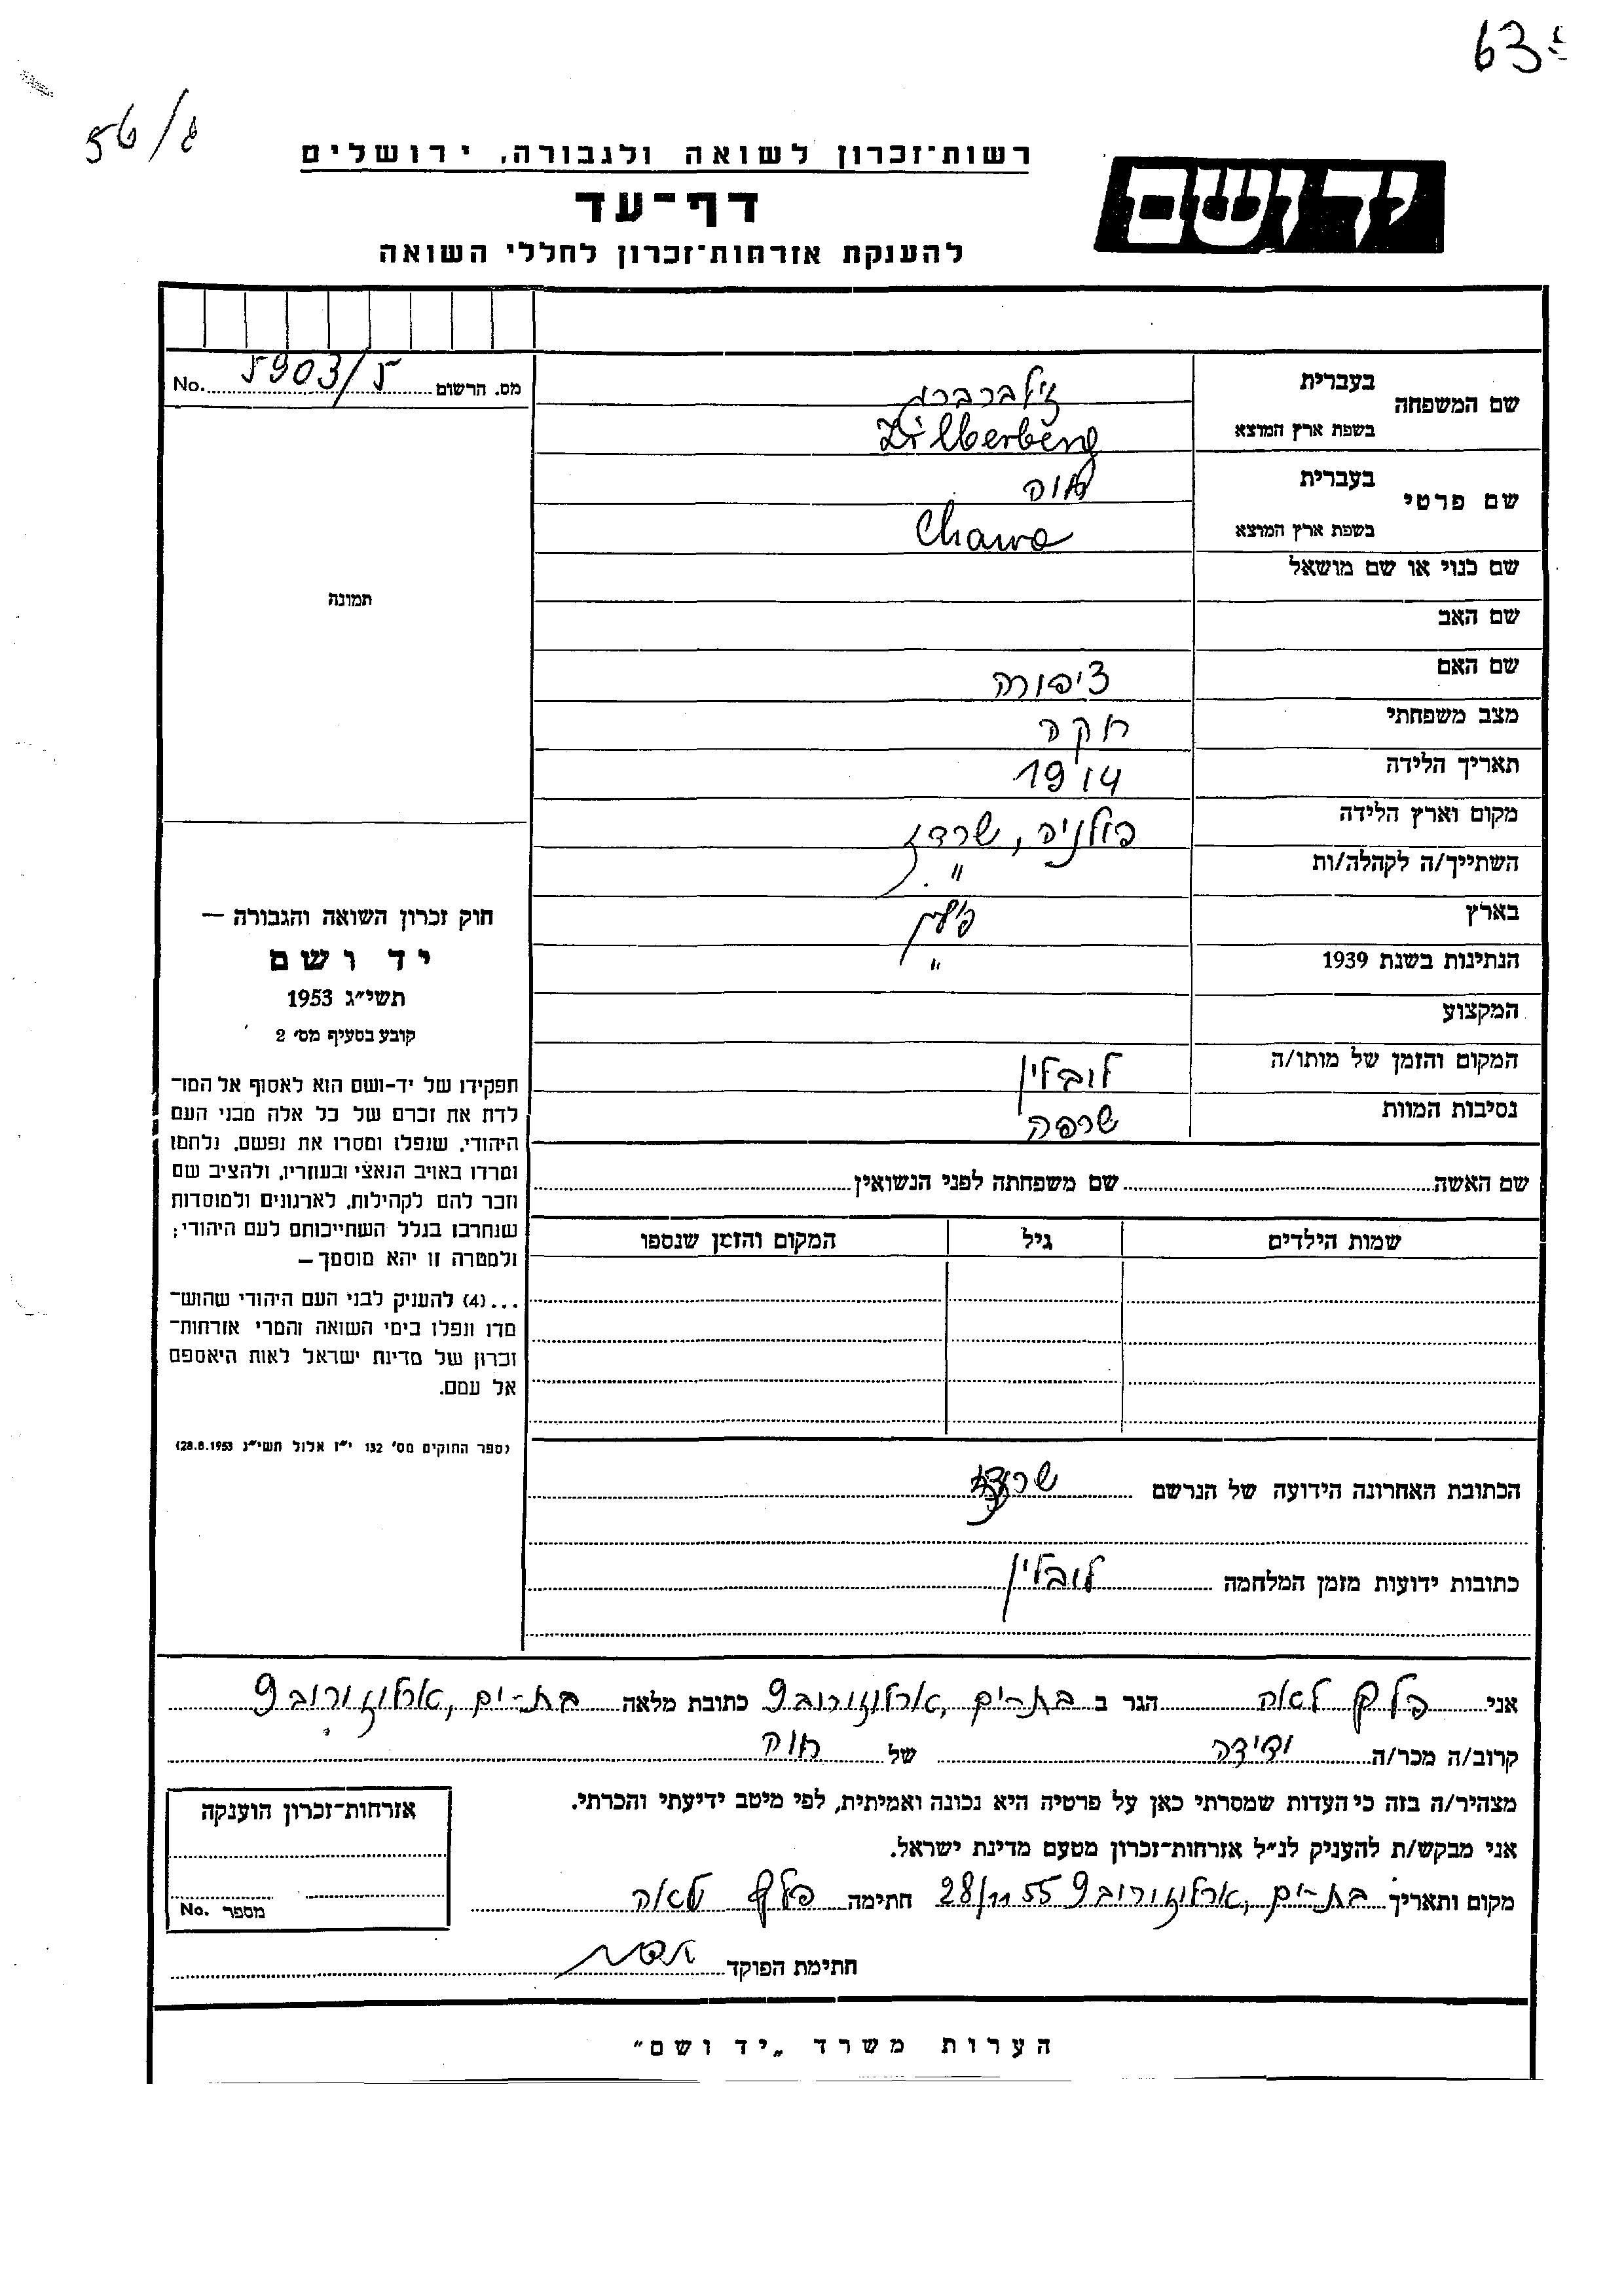 63
56/ג
רשות־זכרון לשואה ולגבורה, ירושלים
דף־עד
להענקת אזרחות־זכרון לחללי השואה
יד ושם
מס. הרשום 5903/5 No.
שם המשפחה בעברית זילברברג
בשפת ארץ המוצא Zilberberg
שם פרטי בעברית חוה
בשפת ארץ המוצא Chawa
שם כנוי או שם מושאל
שם האב
שם האם ציפורה
מצב משפחתי רוקה
תאריך הלידה 1914
מקום וארץ הלידה פולניה, שרדז
השתייך/ה לקהלה/ות "
בארץ פולין
הנתינות בשנת 1939 "
המקצוע
המקום והזמן של מותו/ה לובלין
נסיבות המוות שרפה
תמונה
חוק זכרון השואה והגבורה —
יד ושם
תשי״ג 1953
קובע בסעיף מס' 2
תפקידו של יד-ושם הוא לאסוף אל המו־
לדת את זכרם של כל אלה מבני העם
היהודי, שנפלו ומסרו את נפשם, נלחמו
ומרדו באויב הנאצי ובעוזריו, ולהציב שם
וזכר להם לקהילות, לארגונים ולמוסדות
שנחרבו בגלל השתייכותם לעם היהודי;
ולמטרה זו יהא מוסמך —
...(4) להעניק לבני העם היהודי שהוש־
מדו ונפלו בימי השואה והמרי אזרחות־
זכרון של מדינת ישראל לאות היאספם
אל עמם.
(ספר החוקים מס' 132 י״ז אלול תשי״ג 28.8.1953)
שם האשה שם משפחתה לפני הנשואין
שמות הילדים גיל המקום והזמן שנספו
הכתובת האחרונה הידועה של הנרשם שרדז
כתובות ידועות מזמן המלחמה לובלין
אני פלק לאה הגר ב בת-ים, ארלוזורוב 9 כתובת מלאה בת-ים, ארלוזורוב 9
קרוב/ה מכר/ה ידידה של חוה
מצהיר/ה בזה כי העדות שמסרתי כאן על פרטיה היא נכונה ואמיתית, לפי מיטב ידיעתי והכרתי.
אני מבקש/ת להעניק לנ״ל אזרחות־זכרון מטעם מדינת ישראל.
מקום ותאריך בת-ים, ארלוזורוב 9 28/11 55 חתימה פלק לאה
חתימת הפוקד
אזרחות־זכרון הוענקה
מספר No.
הערות משרד „יד ושם"